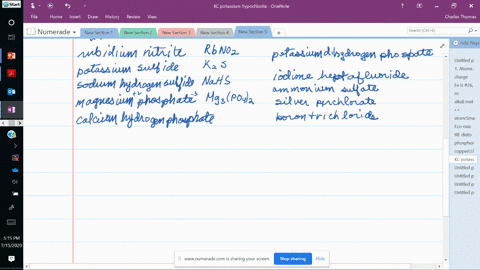 Start
KC potassium hypochlorite - OneNote
Charles Thomas
File Home Insert Draw History Review View
Numerade
New Section 1 New Section 2 New Section 3 New Section 4 New Section 5
Search (Ctrl+E)
Add Page
rubidium nitrite RbNO2
potassium sulfide K2S
sodium hydrogen sulfide NaHS
magnesium+2 phosphate-3 Mg3(PO4)2
calcium hydrogen phosphate
potassium dihydrogen phospate
iodine heptafluoride
ammonium sulfate
silver perchlorate
boron trichloride
Untitled p
1. Atomic
charge
Fe is P26,
no
alkali met
atom/Sma
phosphor
copper(I
KC potass
Untitled p
Untitled p
Untitled p
Untitled p
www.numerade.com is sharing your screen.
Stop sharing
Hide
5:15 PM
7/15/2020